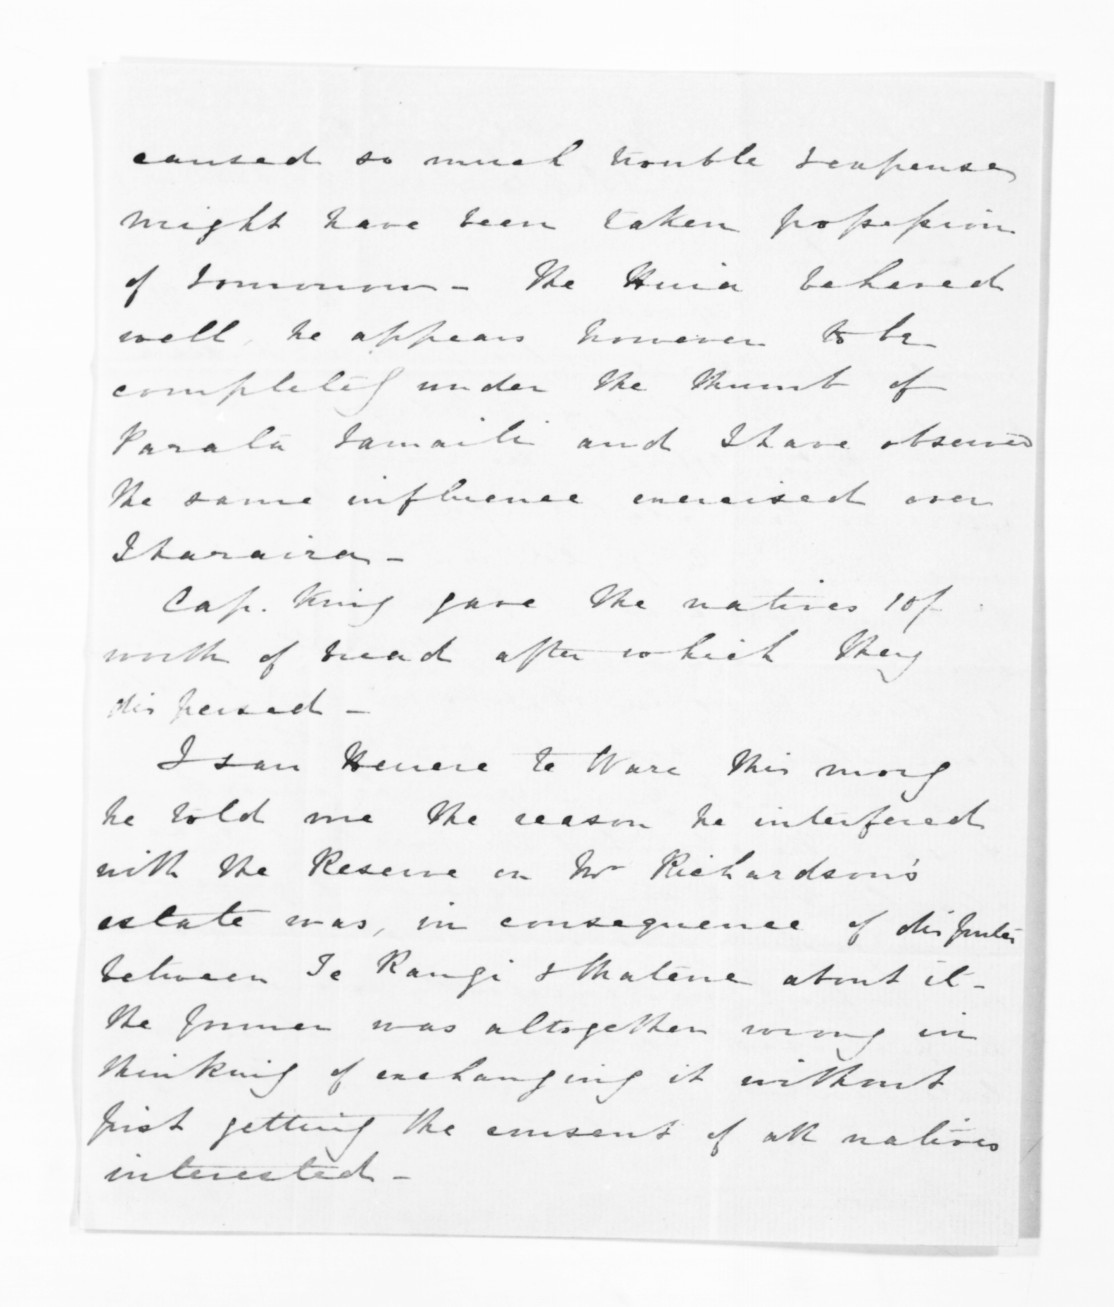 caused so much trouble & expense
might have been taken possession
of tomorrow - The Huia behaved
well, he appears however to be
completely under the thumb of
Paratu Tamaiti and I have observed
the same influence exercised over
Tharaira -
Cap. King gave the natives 10/
worth of bread after which they
dispersed -
I saw Henere te Ware this morg
he told me the reason he interfered
with the Reserve on Mr Richardson's
estate was, in consequence of disputes
between Te Rangi & Matene about it -
the former was altogether wrong in
thinking of exchanging it without
first getting the consent of all natives
interested -